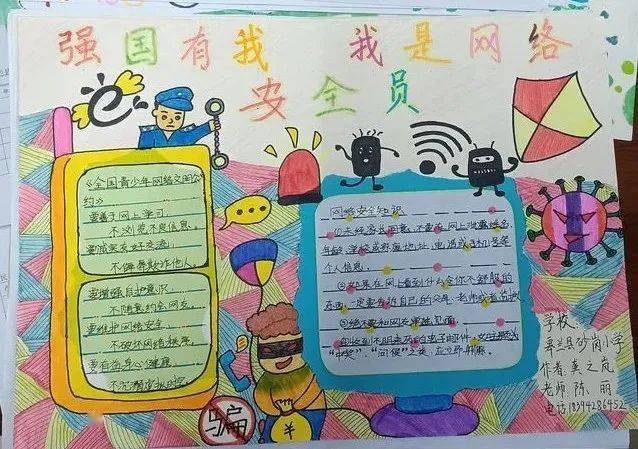 强国有我 我是网络
安全员
《全国青少年网络文明公
约》
要善于网上学习
不浏览不良信息
要诚实友好交流
不侮辱欺诈他人
要增强自护意识
不随意约会网友
要维护网络安全
不破坏网络秩序
要有益身心健康
不沉溺虚拟时空
网络安全知识
年龄,学校或家庭地址,电话或
个人信息。
②如果在网上看到什么令你不舒服的
东西,一定要告诉自己的父母、老师或者
③绝不要和网友单独见面。
"中奖"、"问候"之类,应立即删除。
骗
¥
学校:
县砂岗小学
作者:姜之岚
老师:陈丽
电话18394286452